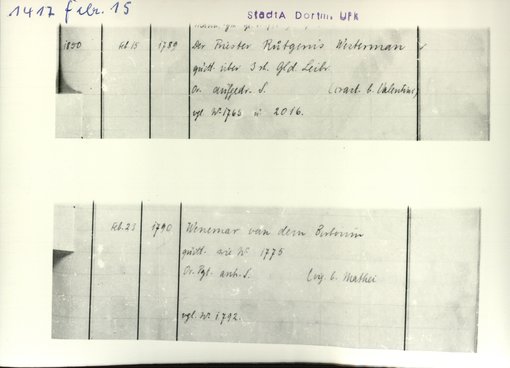 1417 febr. 15
StadtA Dortm. Urk
1890 Feb. 15 1789 Der Priester Rutgerus Westerman
quitt. über 3 rh. Gld. Leibr.
Or. aufgedr. S. (crast. b. Valentini)
vgl. № 1763 u. 2016.
Feb. 23 1790 Wenemar van dem
quitt. wie № 1775
Or. Pgt. anh. S. (vig. b. Mathei
vgl. № 1792.